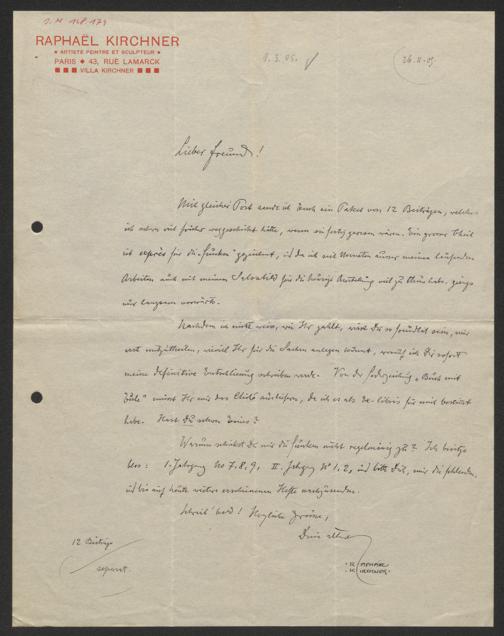 J. N 148.179
RAPHAËL KIRCHNER
ARTISTE PEINTRE ET SCULPTEUR
PARIS ◆ 43, RUE LAMARCK
VILLA KIRCHNER
1. 3. 05.
26. II. 05.
Lieber Freund!
Mit gleicher Post sende ich Euch ein Paket von 12 Beiträgen, welche
ich schon viel früher weggeschickt hätte, wenn sie fertig gewesen wären. Ein grosser Theil
ist exprès für die „Funken" gezeichnet, und da ich seit Monaten ausser meinen laufenden
Arbeiten auch mit meinen für die hiesige Ausstellung viel zu thun habe, gings
nur langsam vorwärts.
Nachdem ich nicht weiss, wie Ihr zahlt, wirst Du so freundlich sein, mir
erst mitzutheilen, wieviel Ihr für die Sachen anlegen könnt, worauf ich Dir sofort
meine definitive Entschliessung schreiben werde. Von der Federzeichnung „Buch mit
" müsst Ihr mir das Cliché ausliefern, da ich es als Ex-libris für mich benützt
habe. Hast Du schon Eines?
Warum schickst Du mir die Funken nicht regelmässig zu? Ich besitze
blos: 1. Jahrgang No 7. 8. 9, II. Jahrgang No 1. 2, und bitte Dich, mir die fehlenden,
und bis auf heute weiter erschienenen Hefte nachzusenden.
Schreib' bald! Herzliche Grüsse,
Dein alter
RAPHAEL
KIRCHNER
12 Beiträge
separat.